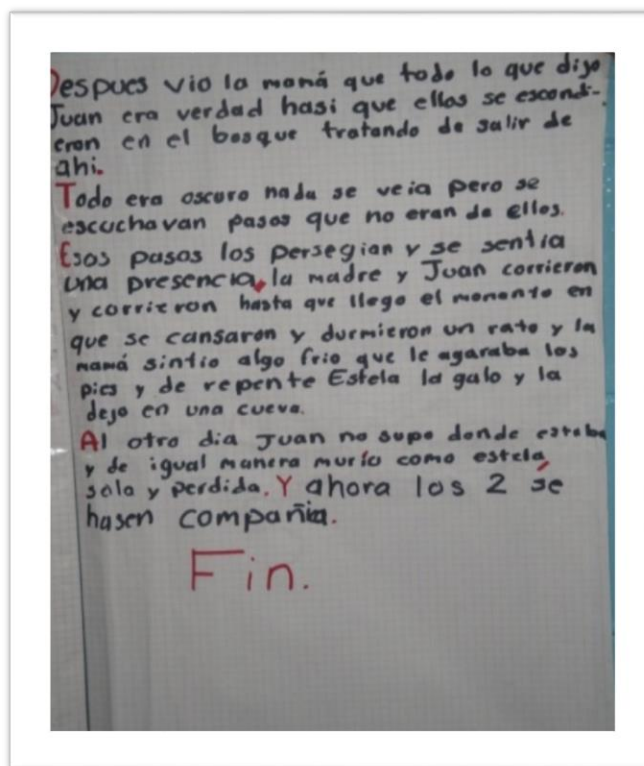 Despues vio la mamá que todo lo que dijo
Juan era verdad hasi que ellos se escondi-
eron en el bosque tratando de salir de
ahi.
Todo era oscuro nada se veia pero se
escuchavan pasos que no eran de ellos.
Esos pasos los persegian y se sentia
una presencia, la madre y Juan corrieron
y corrieron hasta que llego el momento en
que se cansaron y durmieron un rato y la
mamá sintio algo frio que le agaraba los
pies y de repente Estela la galo y la
dejo en una cueva.
Al otro dia Juan no supo donde estaba
y de igual manera murio como estela,
sola y perdida. Y ahora los 2 se
hasen compañia.
Fin.